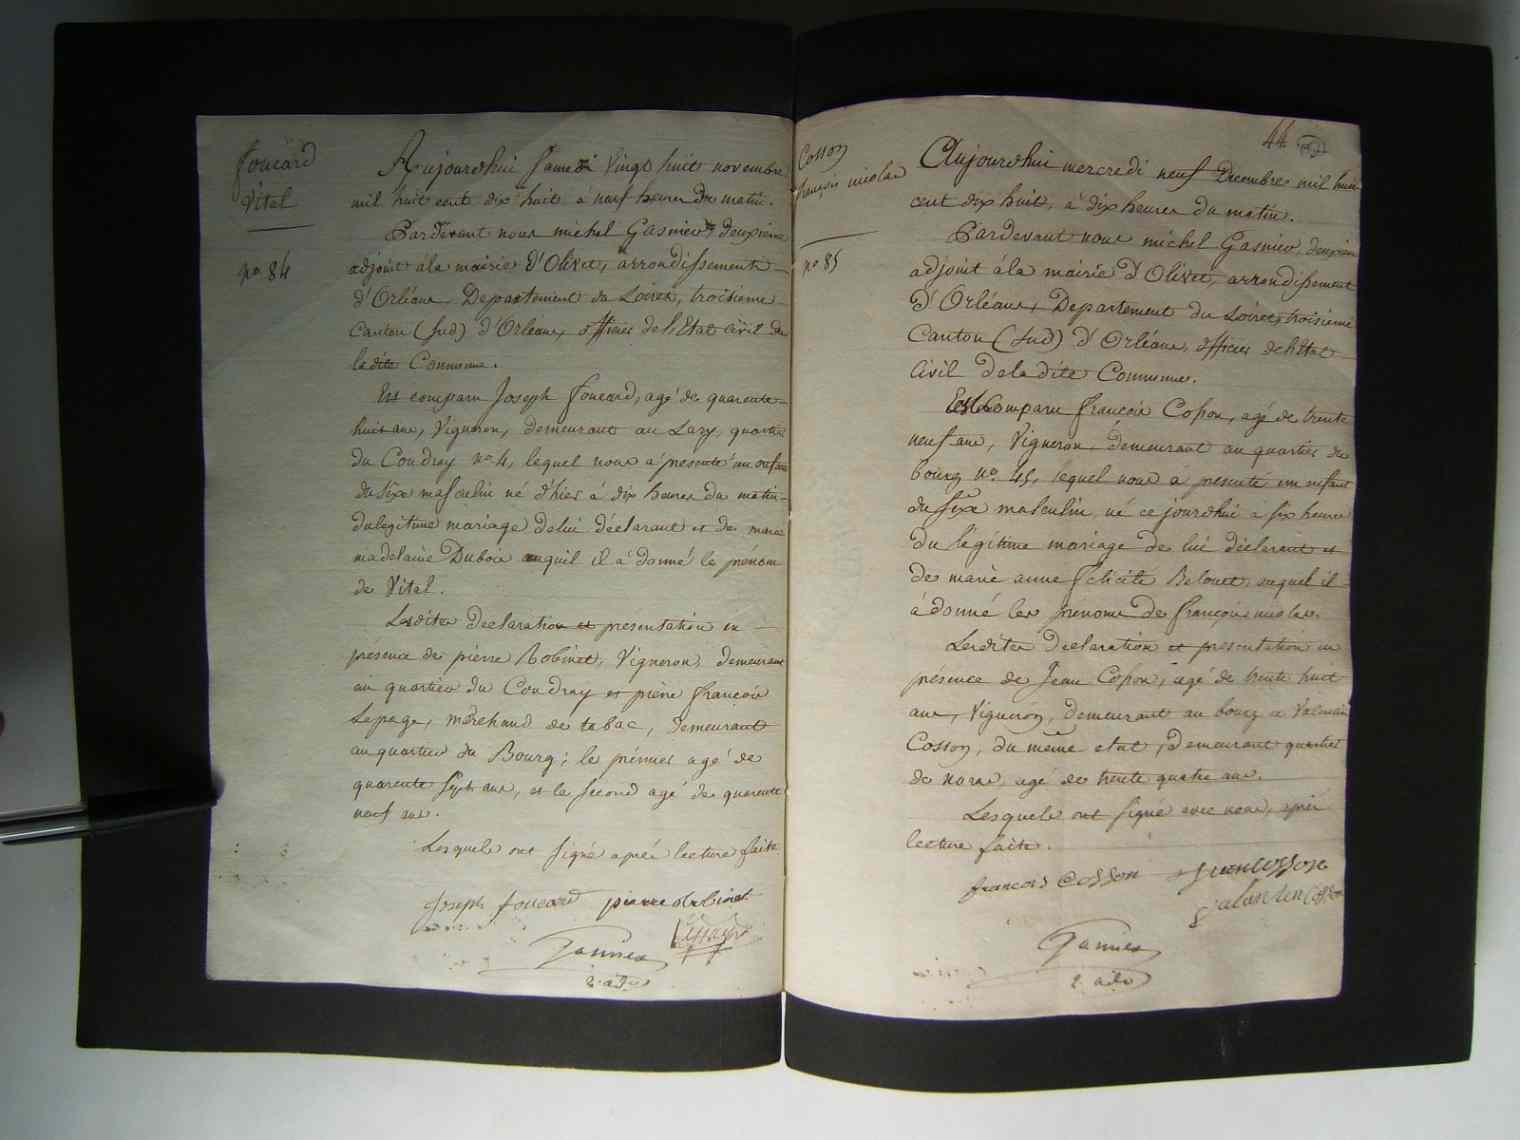 foucard
Vital
no. 84
Aujourdhui samedi vingt huit novembre
mil huit cent dix huit à neuf heures du matin.
Pardevant nous michel Gasnier deuxieme
adjoint à la mairie d'Olivet, arrondissement
d'Orléans, Departement du Loiret, troisieme
Canton (Sud) d'Orléans, officier de l'Etat Civil de
la dite Commune.
Est comparu Joseph foucard, agé de quarente
huit ans, Vigneron, demeurant au Lazy, quartier
du Coudray no. 4, lequel nous a présenté un enfant
du sexe masculin né d'hier à dix heures du matin
du legitime mariage de lui déclarant et de marie
madelaine Dubois auquel il a donné le prénom
de Vital.
Lesdites declaration et présentation en
présence de pierre Robinet, Vigneron, demeurant
au quartier du Coudray et pierre françois
Lepage, marchand de tabac, demeurant
au quartier du Bourg; le prémier agé de
quarente sept ans, et le second agé de quarente
neuf ans.
Lesquels ont signé aprés lecture faite.
Joseph foucard pierre robinet
Gasnier
2e adj
44
Cosson
françois nicolas
no. 85
Aujourdhui mercredi neuf Decembre mil huit
cent dix huit, à dix heures du matin.
Pardevant nous michel Gasnier, deuxieme
adjoint à la mairie d'Olivet, arrondissement
d'Orléans, Departement du Loiret, troisieme
Canton (Sud) d'Orléans, officier de l'Etat
Civil de la dite Commune.
Est Comparu françois Cosson, agé de trente
neuf ans, Vigneron, demeurant au quartier du
bourg no. 45, lequel nous à présenté un enfant
du sexe masculin, né ce jourdhui à six heures
du légitime mariage de lui déclarant et
de marie anne félicité Belouet, auquel il
à donné les prénoms de françois nicolas.
Lesdites declaration et presentation en
présence de Jean Cosson, agé de trente huit
ans, Vigneron, demeurant au bourg et Valentin
Cosson, du même etat, demeurant quartier
de agé de trente quatre ans.
Lesquels ont signé avec nous, aprés
lecture faite.
francois Cosson Jean cosson
valanten Cosson
Gasnier
2 adj